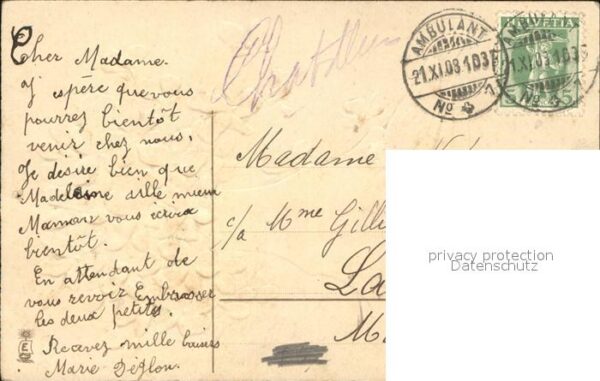 Cher Madame.
J'espère que vous
pourrez bientôt
venir chez nous.
Je désire bien que
Madeleine aille mieux
Maman vous écrira
bientôt.
En attendant de
vous revoir Embrasser
les deux petits.
Recevez mille baisers
Marie
Madame
c/a Mme Gilli
La
M
AMBULANT
21.XI.08.10
No 1
AMBULANT
21.XI.08.10
No 1
HELVETIA
5
privacy protection
Datenschutz